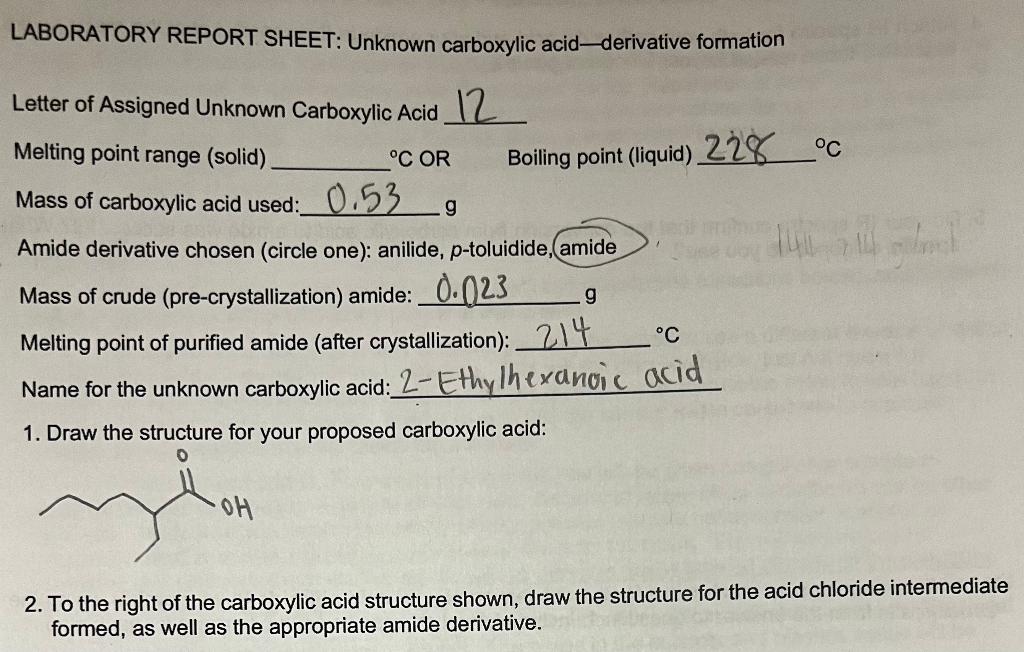 LABORATORY REPORT SHEET: Unknown carboxylic acid—derivative formation
Letter of Assigned Unknown Carboxylic Acid 12
Melting point range (solid) ________ °C OR Boiling point (liquid) 228 °C
Mass of carboxylic acid used: 0.53 g
Amide derivative chosen (circle one): anilide, p-toluidide, amide
Mass of crude (pre-crystallization) amide: 0.023 g
Melting point of purified amide (after crystallization): 214 °C
Name for the unknown carboxylic acid: 2-Ethylhexanoic acid
1. Draw the structure for your proposed carboxylic acid:
O
OH
2. To the right of the carboxylic acid structure shown, draw the structure for the acid chloride intermediate
formed, as well as the appropriate amide derivative.